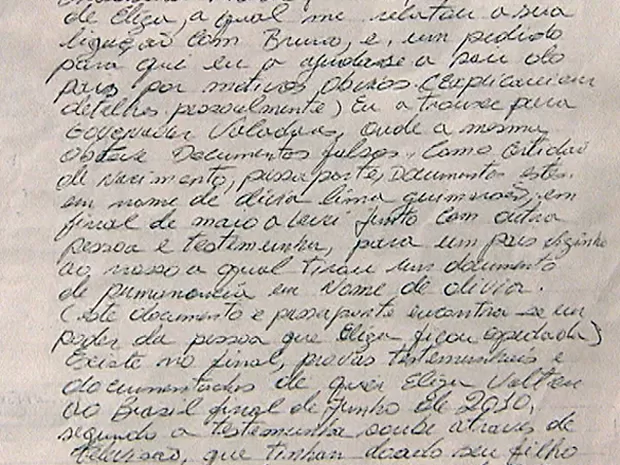 de Eliza, a qual me relatou a sua
ligação com Bruno, e, um pedido
para que eu a ajudasse a sau do
país por motivos obvios. (Explicarei em
detelhes pessoalmente) Eu a trouxe para
Governador Valadares, onde a mesma
obteve Documentos falsos, Como certidão
de Nascimento, passaporte, Documentos estes
em nome de olivia lima guimarães, em
final de maio a levei junto com outra
pessoa e testemunha, para um pais vizinho
ao nosso a qual tirou um documento
de permanencia em Nome de olivia.
(este documento e passaporte encontra-se em
poder da pessoa que Eliza ficou espedada)
Existe no final, provas testemunhais e
documentadas de que Eliza Voltou
ao Brasil final de Junho de 2010,
segundo a testemunha soube através de
televisão, que tinham doado seu filho